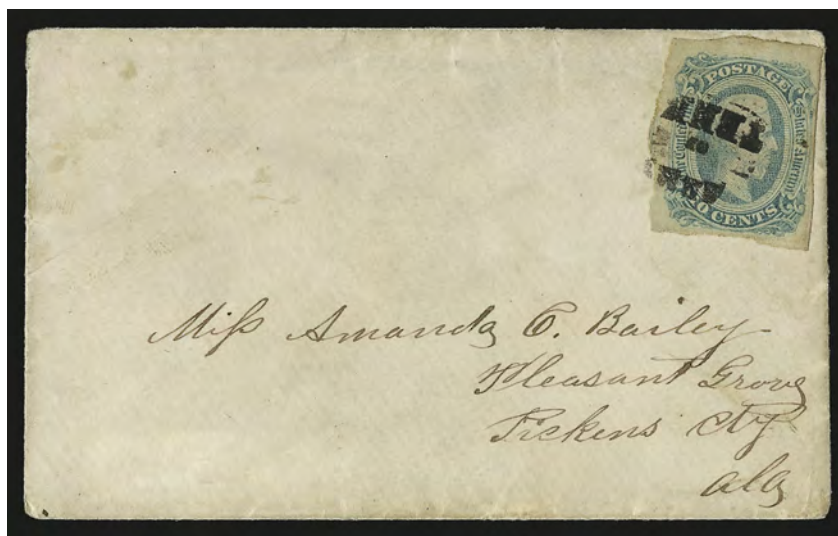 POSTAGE
States America
CENTS
Miss Amanda C. Bailey
Pleasant Grove
Pickens Cty
Ala